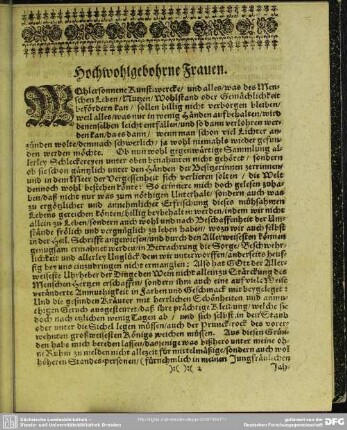 Hochwohlgebohrne Frauen.
WOhlersonnene Kunst-wercke/ und alles/ was des Men-
schen Leben/ Nutzen/ Wohlstand oder Gemächlichkeit
befördern kan/ sollen billig nicht verborgen bleiben/
weil alles/ was nur in wenig Händen aufbehalten/ wird
denenselben leicht entfallen/ und so dann verlohren wer-
den kan/ da es dann/ wenn man schon viel Lichter an-
zünden wolte dennoch schwerlich/ ja wohl niemahls wieder gefun-
den werden möchte. Ob nun wohl gegenwärtige Sammlung al-
lerley Schleckereyen unter oben benahmten nicht gehöret/ sondern
ob sie schon gäntzlich unter den Händen der Besitzerinnen zerrinnen
und in dem Meer der Vergessenheit sich verlieren solten/ die Welt
dennoch wohl bestehen könte: So erinnere mich doch gelesen zuha-
ben/ daß nicht nur was zum nöthigen Unterhalt/ sondern auch was
zu ergötzlicher und annehmlicher Erfrischung dieses mühsahmen
Lebens gereichen könten/ billig beybehalten werden/ indem wir nicht
allein zu Leben/ sondern auch wohl und nach Beschaffenheit der Um-
stände frölich und vergnüglich zu leben haben/ wozu wir auch selbst
in der Heil. Schrifft angewiesen/ und durch den Allerweisesten können
genugsam ermahnet werden/ in Betrachtung die Sorge/ Beschwehr-
lichkeit und allerley Unglück dem wir unterworffen/ anderseits heuf-
fig bey uns einzudringen nicht ermanglen: Also hat GOtt der Aller-
weiseste Urheber der Dinge den Wein nicht allein zu Stärckung des
Menschen Hertzen erschaffen/ sondern ihm auch eine auf viel Weise
veränderte Anmuthigkeit in Farben und Geschmack mit beygeleget:
Und die gesunden Kräuter mit herrlichen Schönheiten und anmu-
thigen Geruch ausgesteuret/ daß ihre prächtige Kleidung/ welche sie
doch nach etlichen wenig Tagen ab/ und sich selbst in den Staub
oder unter die Sichel legen müssen/ auch der Pruncke-rock des vorer-
wehnten großweisesten Königs weichen müssen. Aus diesen Grün-
den habe mich bereden lassen/ dasjenige was bißher unter meine oh-
ne Ruhm zu melden nicht allezeit für mittelmäßige/ sondern auch wol
höheren Standes-personen/ (fürnehmlich in meinen Jungfräulichen
)( )( 2
Jah-
Sächsische Landesbibliothek -
Staats- und Universitätsbibliothek Dresden
gefördert von der
DFG